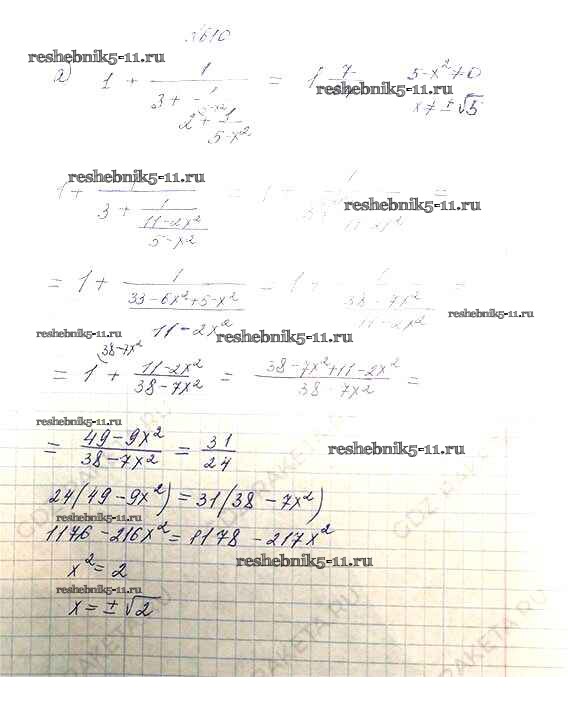 №610
reshebnik5-11.ru
а) 1 + 1/(3 + 1/(2 + 1/(5-x²))) = 1 7/ 5-x²≠0
reshebnik5-11.ru
x≠±√5
reshebnik5-11.ru
1 + 1/(3 + 1/((11-2x²)/(5-x²))) = 1 + =
reshebnik5-11.ru
= 1 + 1/((33-6x²+5-x²)/(11-2x²)) = 1 + 1/((38-7x²)/(11-2x²)) =
reshebnik5-11.ru
reshebnik5-11.ru
38-7x²
= 1 + (11-2x²)/(38-7x²) = (38-7x²+11-2x²)/(38-7x²) =
reshebnik5-11.ru
= (49-9x²)/(38-7x²) = 31/24
reshebnik5-11.ru
24(49-9x²)=31(38-7x²)
reshebnik5-11.ru
1176-216x²=1178-217x²
x²=2
reshebnik5-11.ru
reshebnik5-11.ru
x=±√2